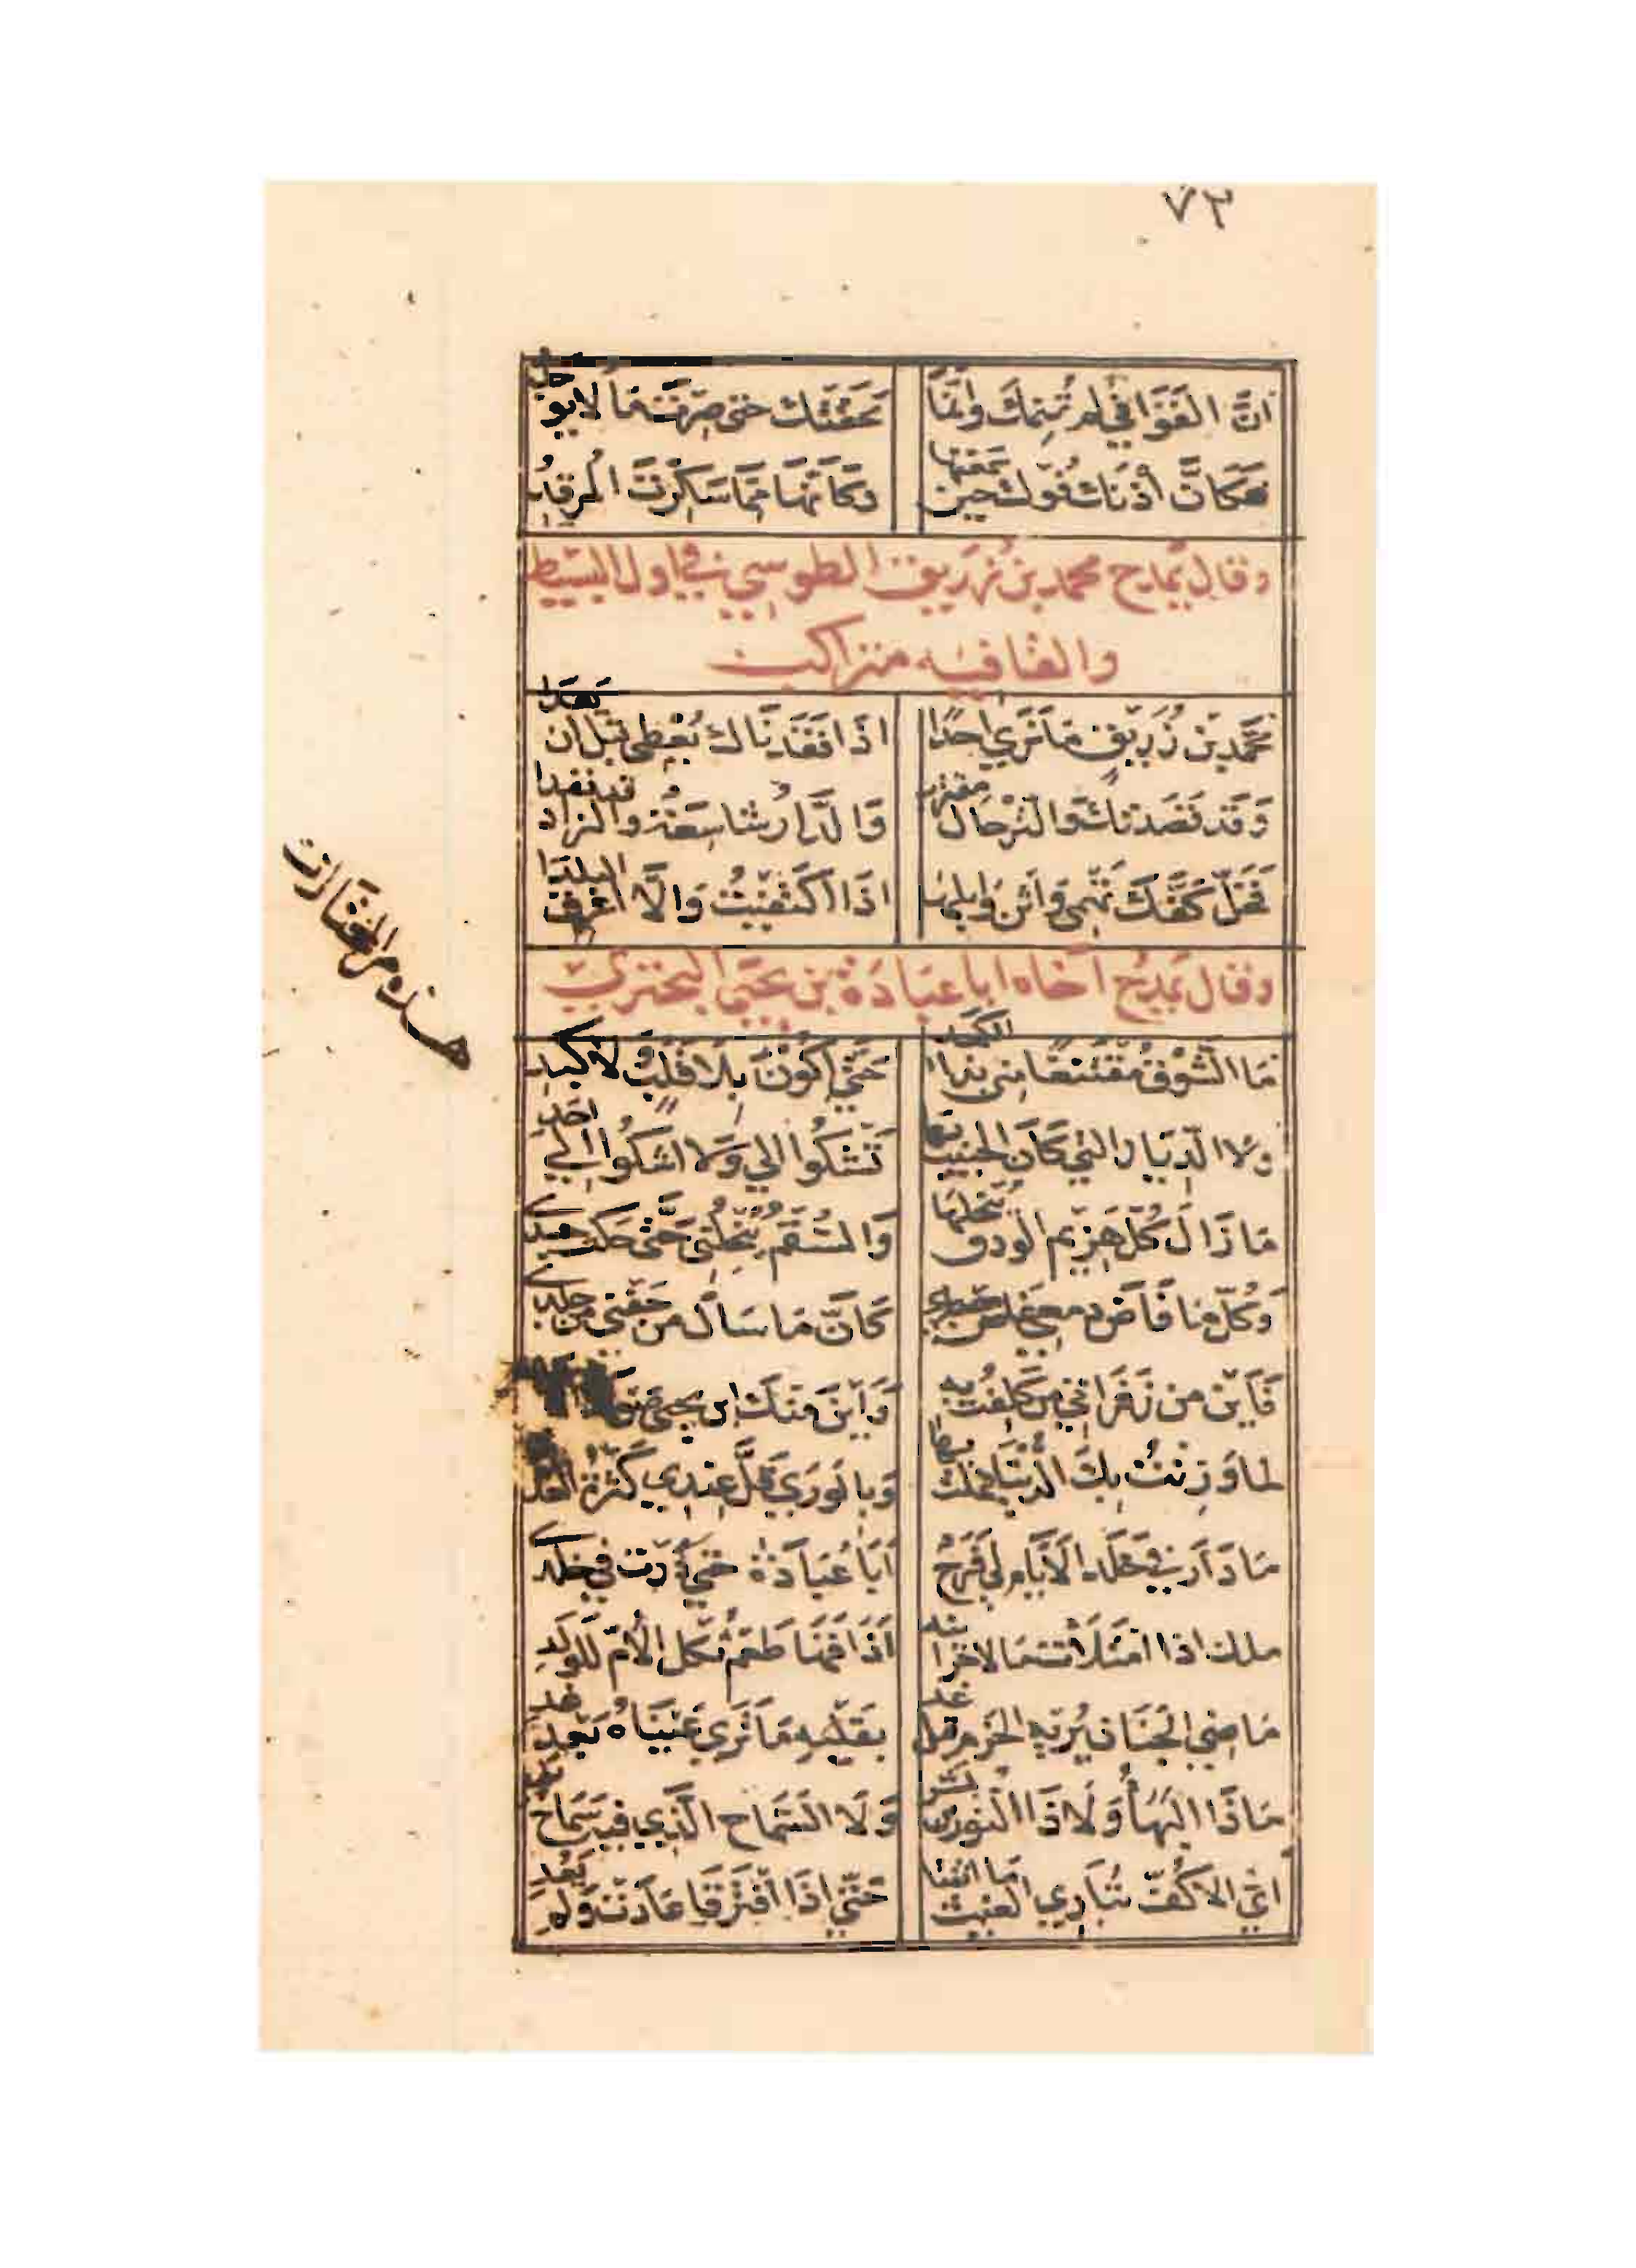 ٧٣
انَّ القَوَافي لم تُنِمكَ وانَّمَا مَحَقتَك حتى صِرتَ مَا لا يوجَدُ
فَكَانَّ أذنَكَ فُوكَ حِينَ سَمعتَها وَكَأنَّهَا مِمَّا سَكِرتَ المرقِدُ
وقال يمدح محمد بن زريق الطوسي في اول البسيط
والقافيه متراكب
مُحَمَّد بن زُرَيق مَا نَرَي احَدًا اذَا فَقَدنَاك يُعطِي قَبلَ ان يَعدَا
وَقَد قَصَدتُكَ وَالتَرحَال مقترب وَالدَّار شاسِعَة والزاد قد نفدا
فَخَلّ كَفَّكَ تَهمِي وَاثنِ وَابِلهَا اذَا اكتَفَيتُ وَالَّا اغرق البلدَا
وقال يَمدَح اخَاه ابا عبَادَة بن يَحيَي البحتري
هذه من المختارات
مَا الشَّوقُ مُقتَنِعًا مني بذا الكمد حَتَّي اكُونَ بِلَا قَلبٍ وَلا كَبدِ
ولا الدّيَار التي كَانَ الحبيب بها تَشكُوا الي وَلَا اشكُوا الي احَدِ
مَا زَالَ كُلّ هَزِيم الودق يُنحلهَا وَالسُّقمُ يُنحِلُنِي حَتَّى حَكَت جسدي
وَكُلّمَا فَاضَ دمعي غاض مصطبري كَانَّ مَا سَالَ من جَفني من جلدي
فَاَينَ من زَفَرَاتي من كَلِفتُ به وَاَينَ منكَ ابن يحيى
لما وَزنتُ بِكَ الدنيَا فملت بها وَبالوَرَي قَلَّ عِندي كَثرَةُ العَدَد
مَا دَارَ في خَلَد الايَّام لي فَرَحٌ اَبَا عُبَادَة حتي دُرت في خلدي
ملك اذا امتَلَأت مَالا خزائنه اَذَاقَهَا طَعمَ ثُكل الأمّ للولَدِ
مَاضِي الجنَان يُريه الحَزم قبل غد بقَلبِه مَا تَري عَينَاهُ بَعدَ غد
مَاذَا البَهَاءُ وَلَا ذَا النُّور من بشر وَلَا السَّمَاح الَّذي فيه سَمَاح يد
ايّ الاكُفّ تُبَاري الغيث ما اتفقَا حَتَّي اذَا افتَرَقَا عَادَت وَلَم يَعُد